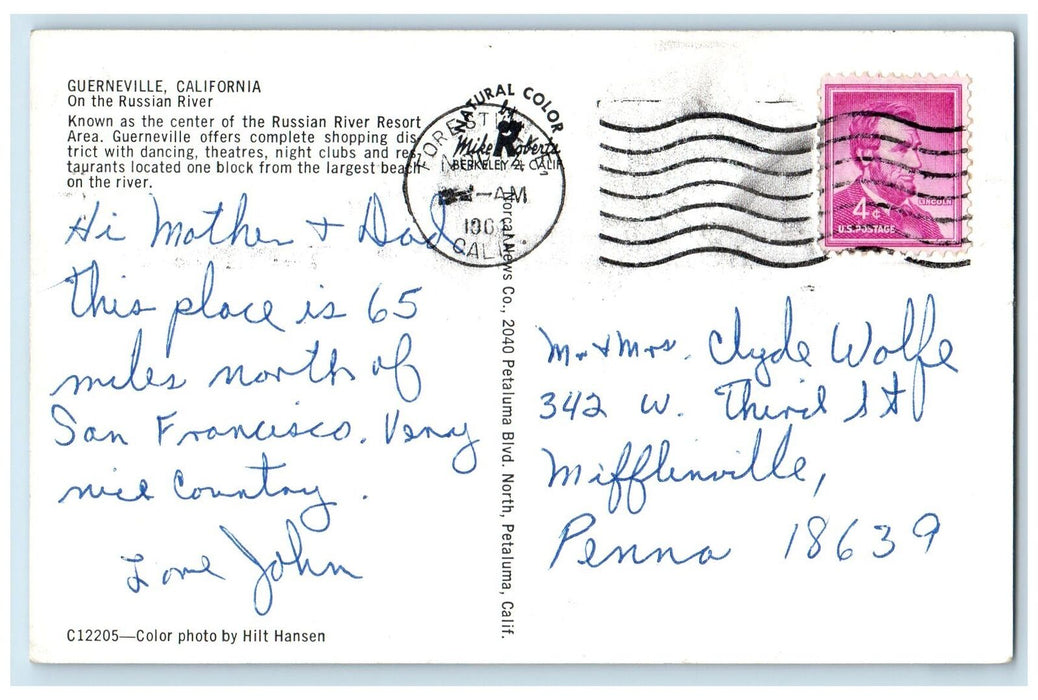 GUERNEVILLE, CALIFORNIA
On the Russian River
Known as the center of the Russian River Resort
Area. Guerneville offers complete shopping dis-
trict with dancing, theatres, night clubs and res-
taurants located one block from the largest beach
on the river.
Hi Mother + Dad
This place is 65
miles north of
San Francisco. Very
nice Country.
Love John
C12205—Color photo by Hilt Hansen
NATURAL COLOR
by
Mike Roberts
BERKELEY 2, CALIF
FORESTVILLE
AM
CALIF.
Norcal News Co., 2040 Petaluma Blvd. North, Petaluma, Calif.
LINCOLN
4¢
U.S. POSTAGE
Mr + Mrs. Clyde Wolfe
342 W. Third St
Mifflinville,
Penna 18639